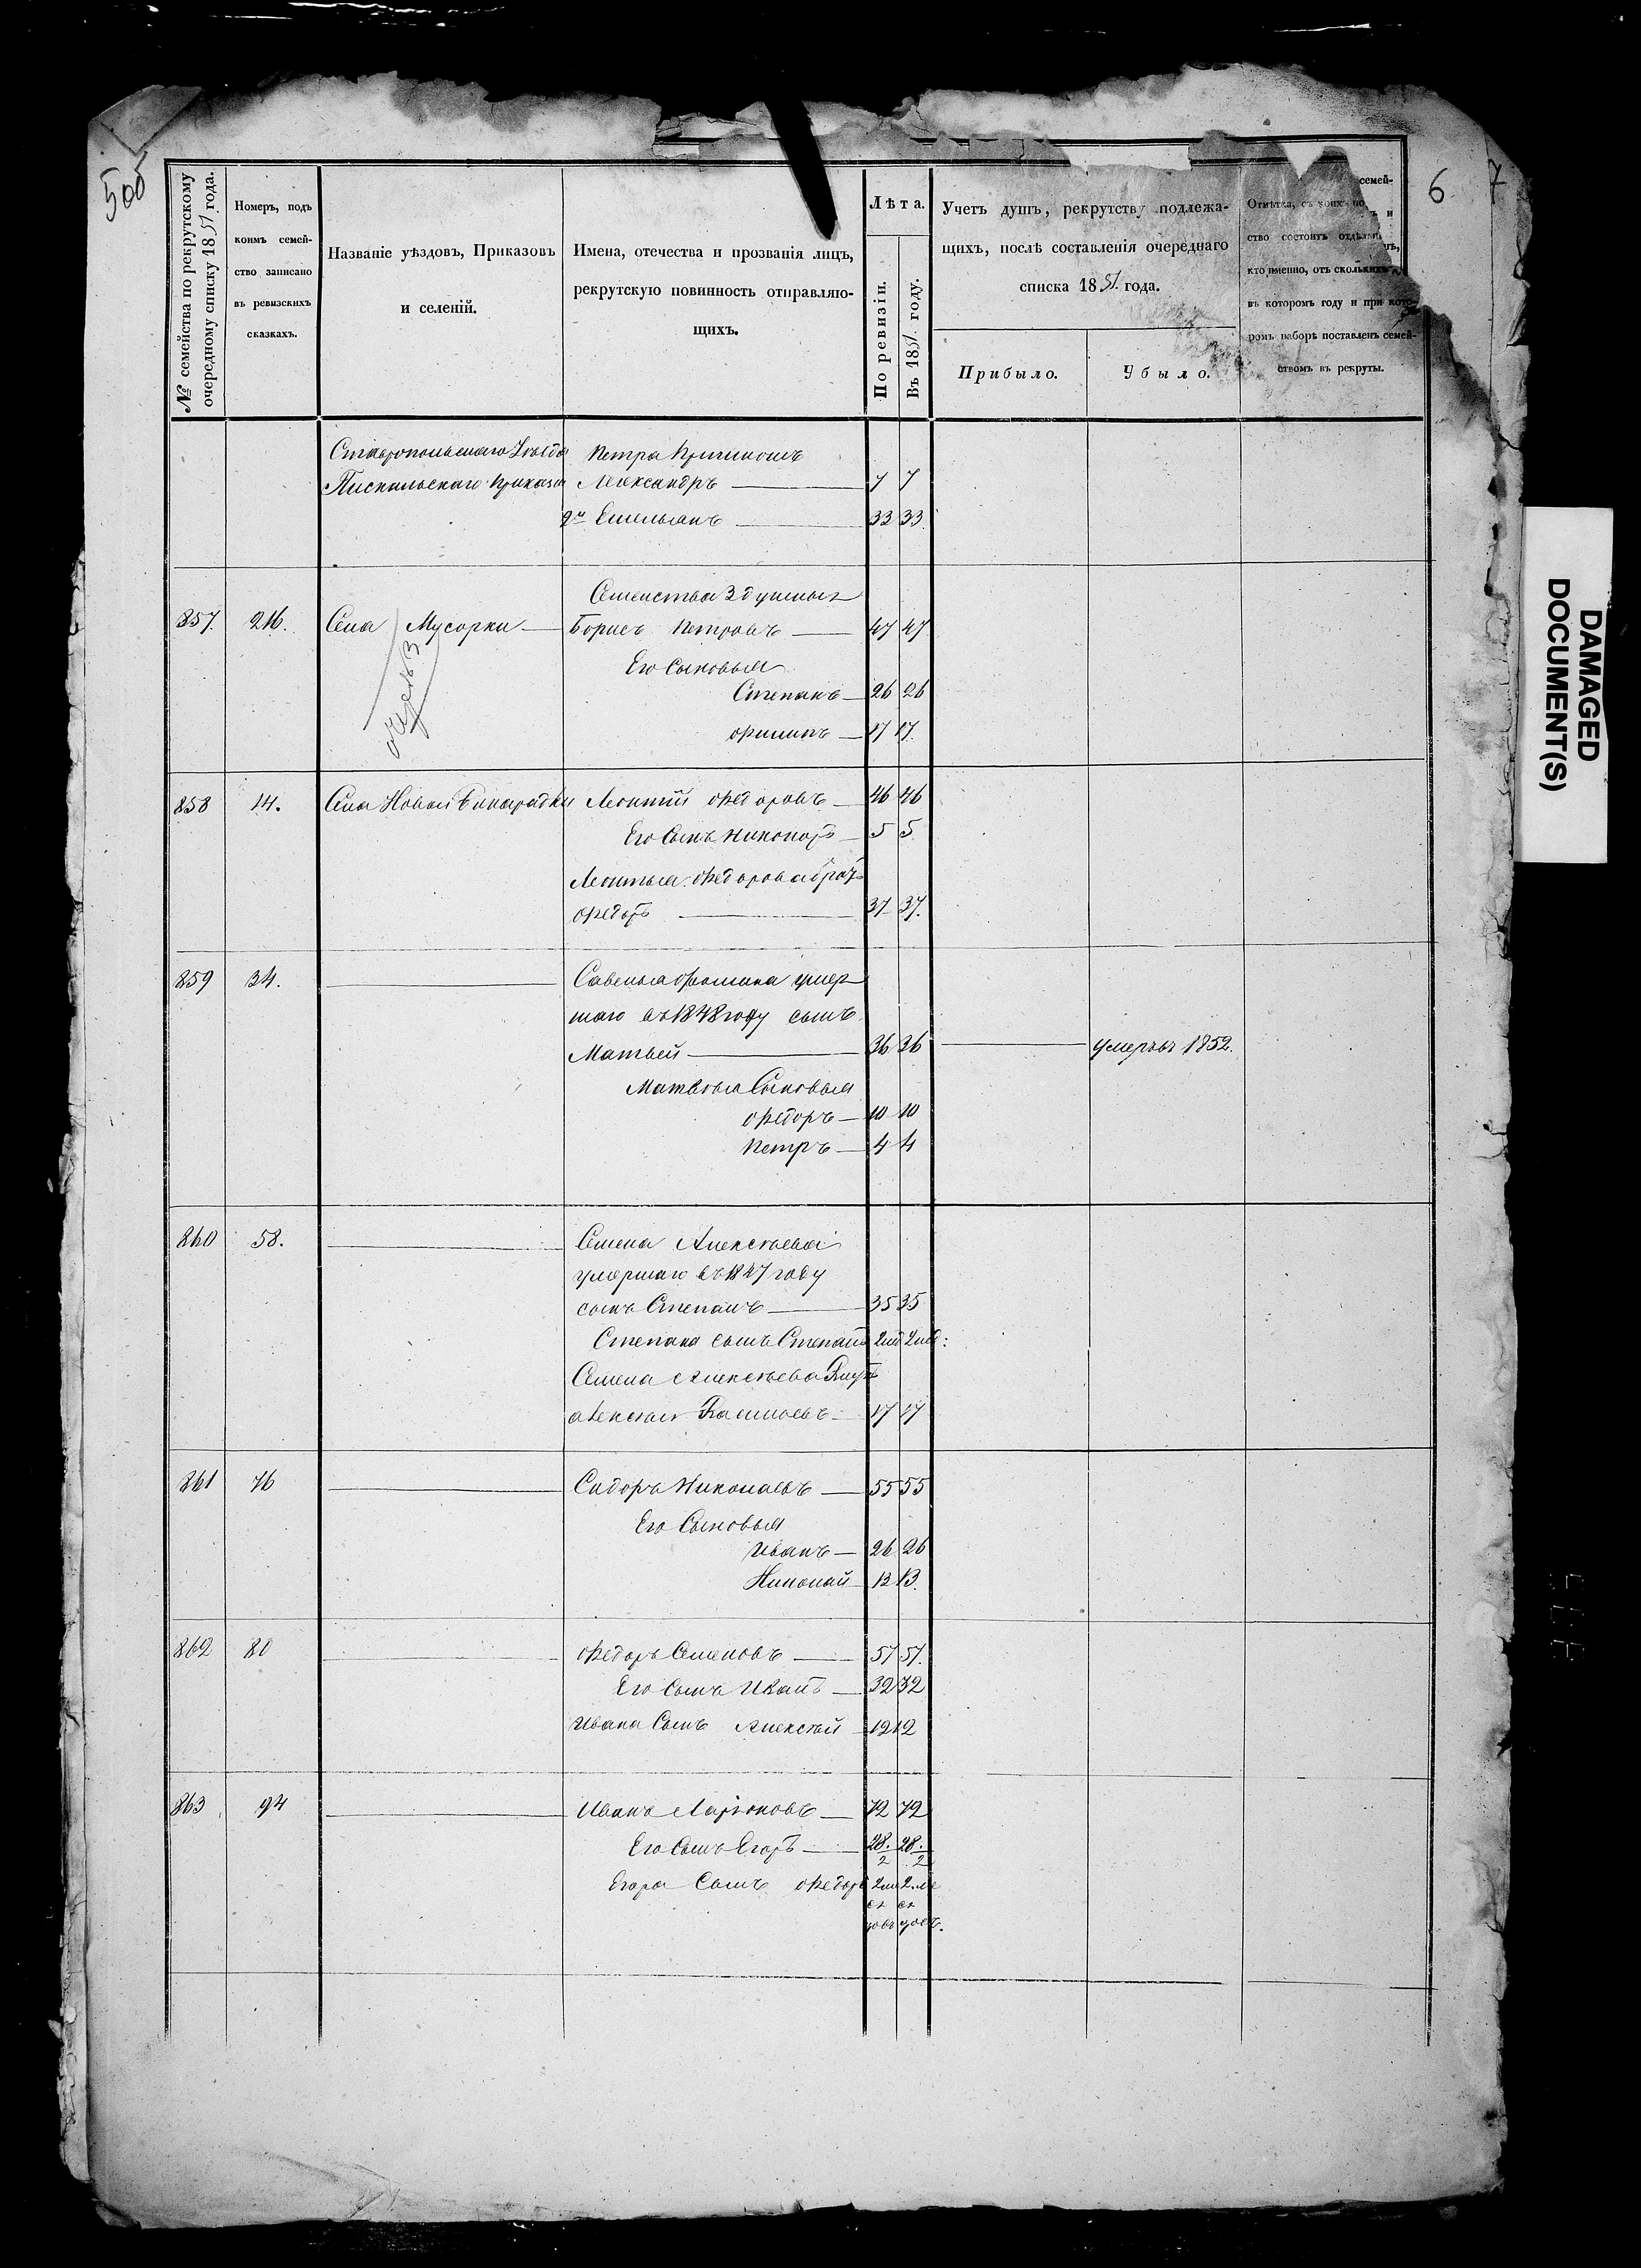 500
6
7
№ семейства по рекрутскому очередному списку 1851 года.
Номеръ, подъ коимъ семейство записано въ ревизскихъ сказкахъ.
Названіе уѣздовъ, Приказовъ
и селеній.
Имена, отечества и прозванія лицъ,
рекрутскую повинность отправляю-
щихъ.
Лѣта.
По ревизіи.
Въ 1851 году.
Учетъ душъ, рекрутству подлежа-
щихъ, послѣ составленія очереднаго
списка 1851 года.
Прибыло.
Убыло.
семей-
Отмѣтка, съ коихъ по
ъ и
ство состоитъ
кто именно, отъ сколькихъ
въ которомъ году и при кото-
ромъ наборѣ поставленъ семей-
ствомъ въ рекруты.
Ставропольскаго Уѣзда
Пискальскаго приказа
Петра
Александръ 7 7
2й Емельянъ 33 33
Семейства 3 душныя
857. 216. Села Мусорки Борисъ Петровъ 47 47
Его Сыновья
Степанъ 26 26
Филипъ 17 17.
858 14. Села Новой Бинарадки Леонтій Федоровъ 46 46
Его Сынъ Никоноръ 5 5
Леонтья Федорова братъ
Федоръ 37 37.
859 34. Савелья Фомина умер
шаго въ 1848 году сынъ
Матвей 36 36 умеръ въ 1852.
Матвѣя Сыновья
Федоръ 10 10
Петръ 4 4
860 58. Семена Алексѣева
умершаго въ 1847 году
сынъ Степанъ 35 35
Степана сынъ Степанъ 2 нед 2 нед:
Семена Алексѣева
Алексѣй 17 17
861 76 Сидоръ Николаевъ 55 55
Его Сыновья
Иванъ 26 26
Николай 13 13.
862 80 Федоръ Семеновъ 57 57.
Его Сынъ Иванъ 32 32
Ивана Сынъ Алексѣй 12 12
863 94 Иванъ Ларіоновъ 72 72
Его Сынъ Егоръ 28.½ 28.½
Егора Сынъ Федоръ 2 ме 2 ме
ся ся
цовъ цовъ.
DAMAGED
DOCUMENT(S)